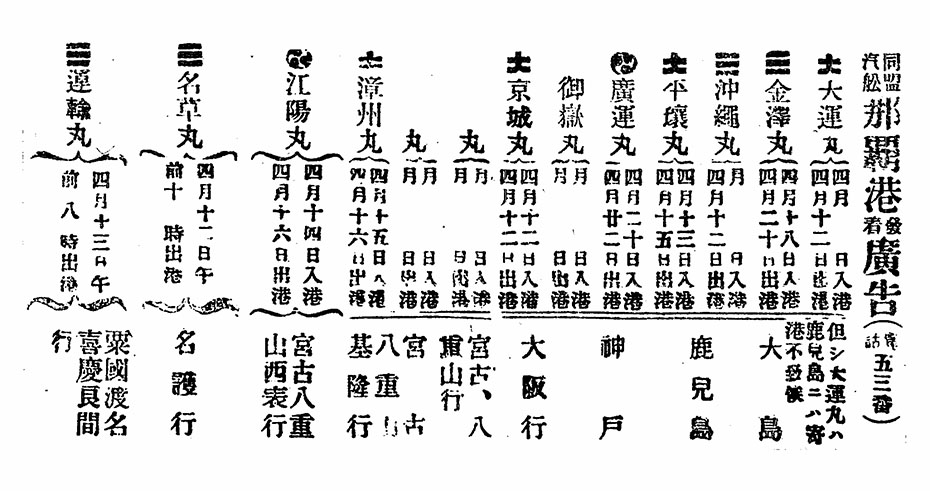 同盟汽舩那覇港發着廣告(電話五三番)
大運丸
四月 日入港
四月十二日出港
金澤丸
四月十八日入港
四月二十日出港
沖繩丸
月 日入港
四月十二日出港
平壤丸
四月十三日入港
四月十五日出港
廣運丸
四月二十日入港
四月廿二日出港
御嶽丸
月 日入港
月 日出港
京城丸
四月十二日入港
四月十二日出港
但シ大運丸ハ
鹿兒島ニハ寄
港不致候
大島
鹿兒島
神戸
大阪行
丸
月 日入港
月 日出港
宮古、八
重山行
丸
月 日入港
月 日出港
漳州丸
四月十五日入港
四月十六日出港
宮古
八重山
基隆行
江陽丸
四月十四日入港
四月十六日出港
宮古八重
山西表行
名草丸
四月十二日午
前十時出港
名護行
運輸丸
四月十三日午
前八時出港
粟國渡名
喜慶良間
行